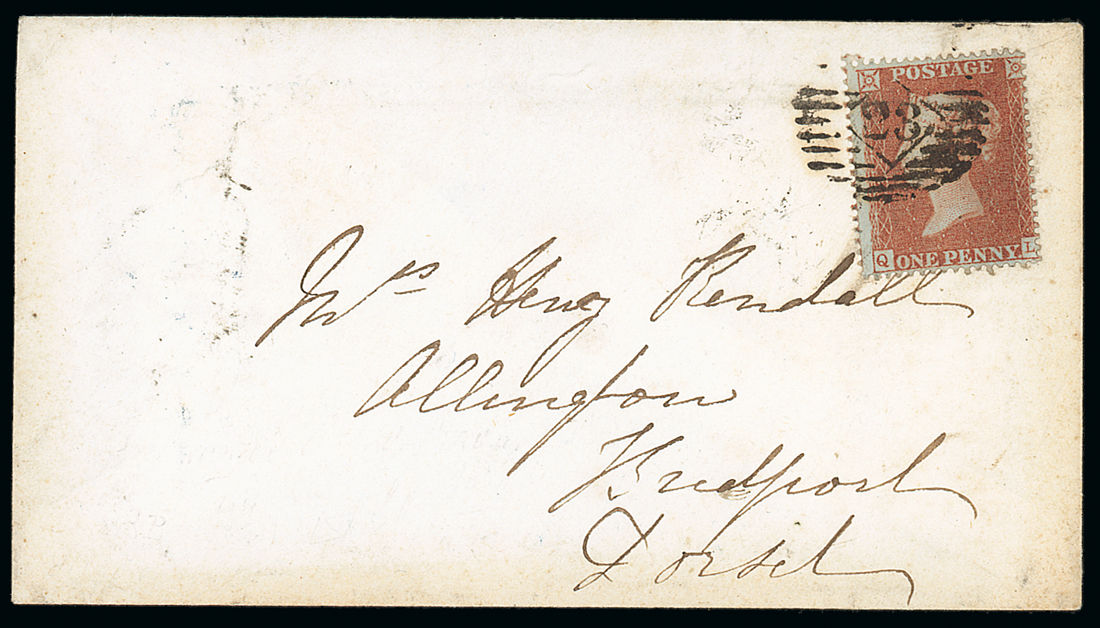 POSTAGE
23
Q ONE PENNY L
Mrs Henry Kendall
Allington
Bridport
Dorset